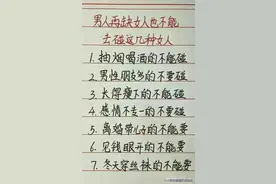 男人再缺女人也不能
去碰这几种女人
1.抽烟喝酒的不能碰
2.男性朋友多的不要碰
3.长得瘦下的不能碰
4.感情不专一的不要碰
5.离婚带儿子的不能要
6.见钱眼开的不能要
7.冬天穿丝袜的不能要